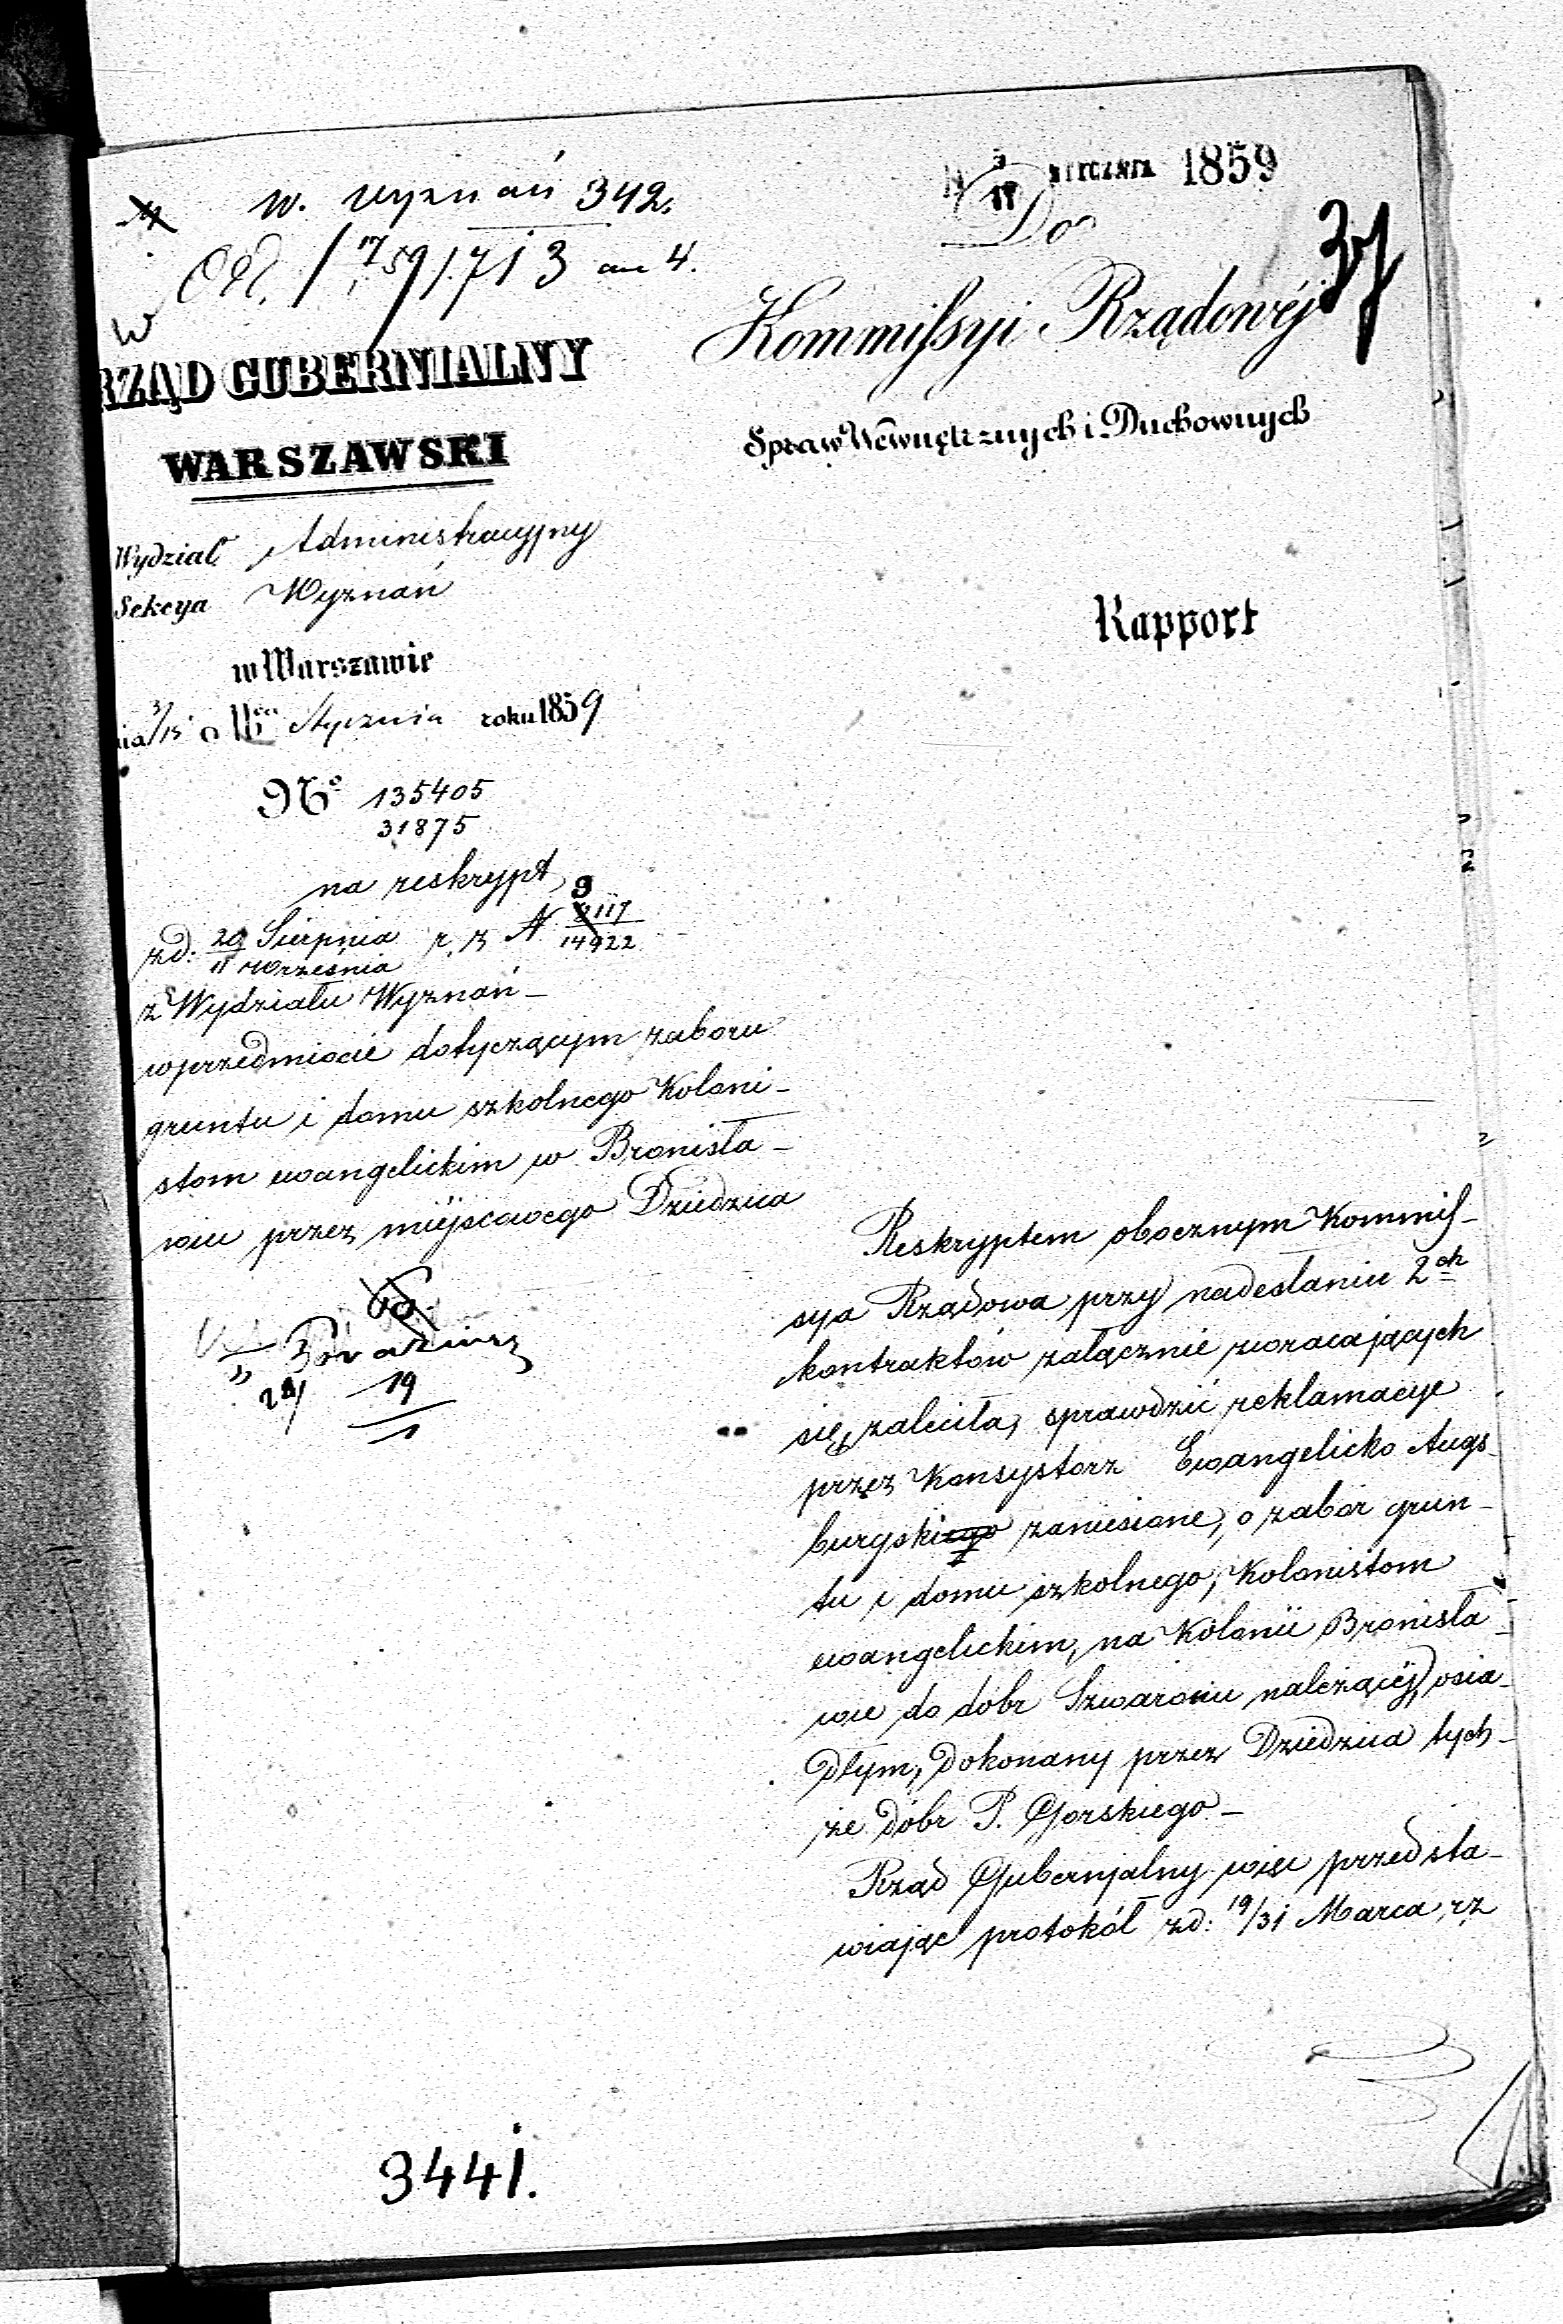 W. Wyznań 342.
RZĄD GUBERNIALNY
WARSZAWSKI
Wydział Administracyjny
Sekcya Wyznań
w Warszawie
nia 3/15 Stycznia roku 1859
No 135405
31875
na reskrypt
zd: 29 Sierpnia r. z N 9117
11 Września 14922
z Wydziału Wyznań –
w przedmiocie dotyczącym zaboru
gruntu i domu szkolnego Koloni–
stom ewangelickim w Bronisła–
wiu przez miejscowego Dziedzica
19
3441.
STYCZNIA 1859
37
Do
Kommissyi Rządowéj
Spraw Wewnętrznych i Duchownych
Rapport
Reskryptem obocznym Kommis–
sya Rządowa przy nadesłaniu 2ch
kontraktów załącznie zwracających
się, zaleciła, sprawdzić reklamacye
przez Konsystorz Ewangelicko Augs–
burgski zaniesione, o zabór grun–
tu i domu szkolnego, Kolonistom
ewangelickim, na Kolonii Bronisła–
wie do dóbr należącéj, osia–
dłym, dokonany przez Dziedzica tych–
że dóbr P. Gorskiego –
Rząd Gubernjalny więc przedsta–
wiając protokół zd: 19/31 Marca rz